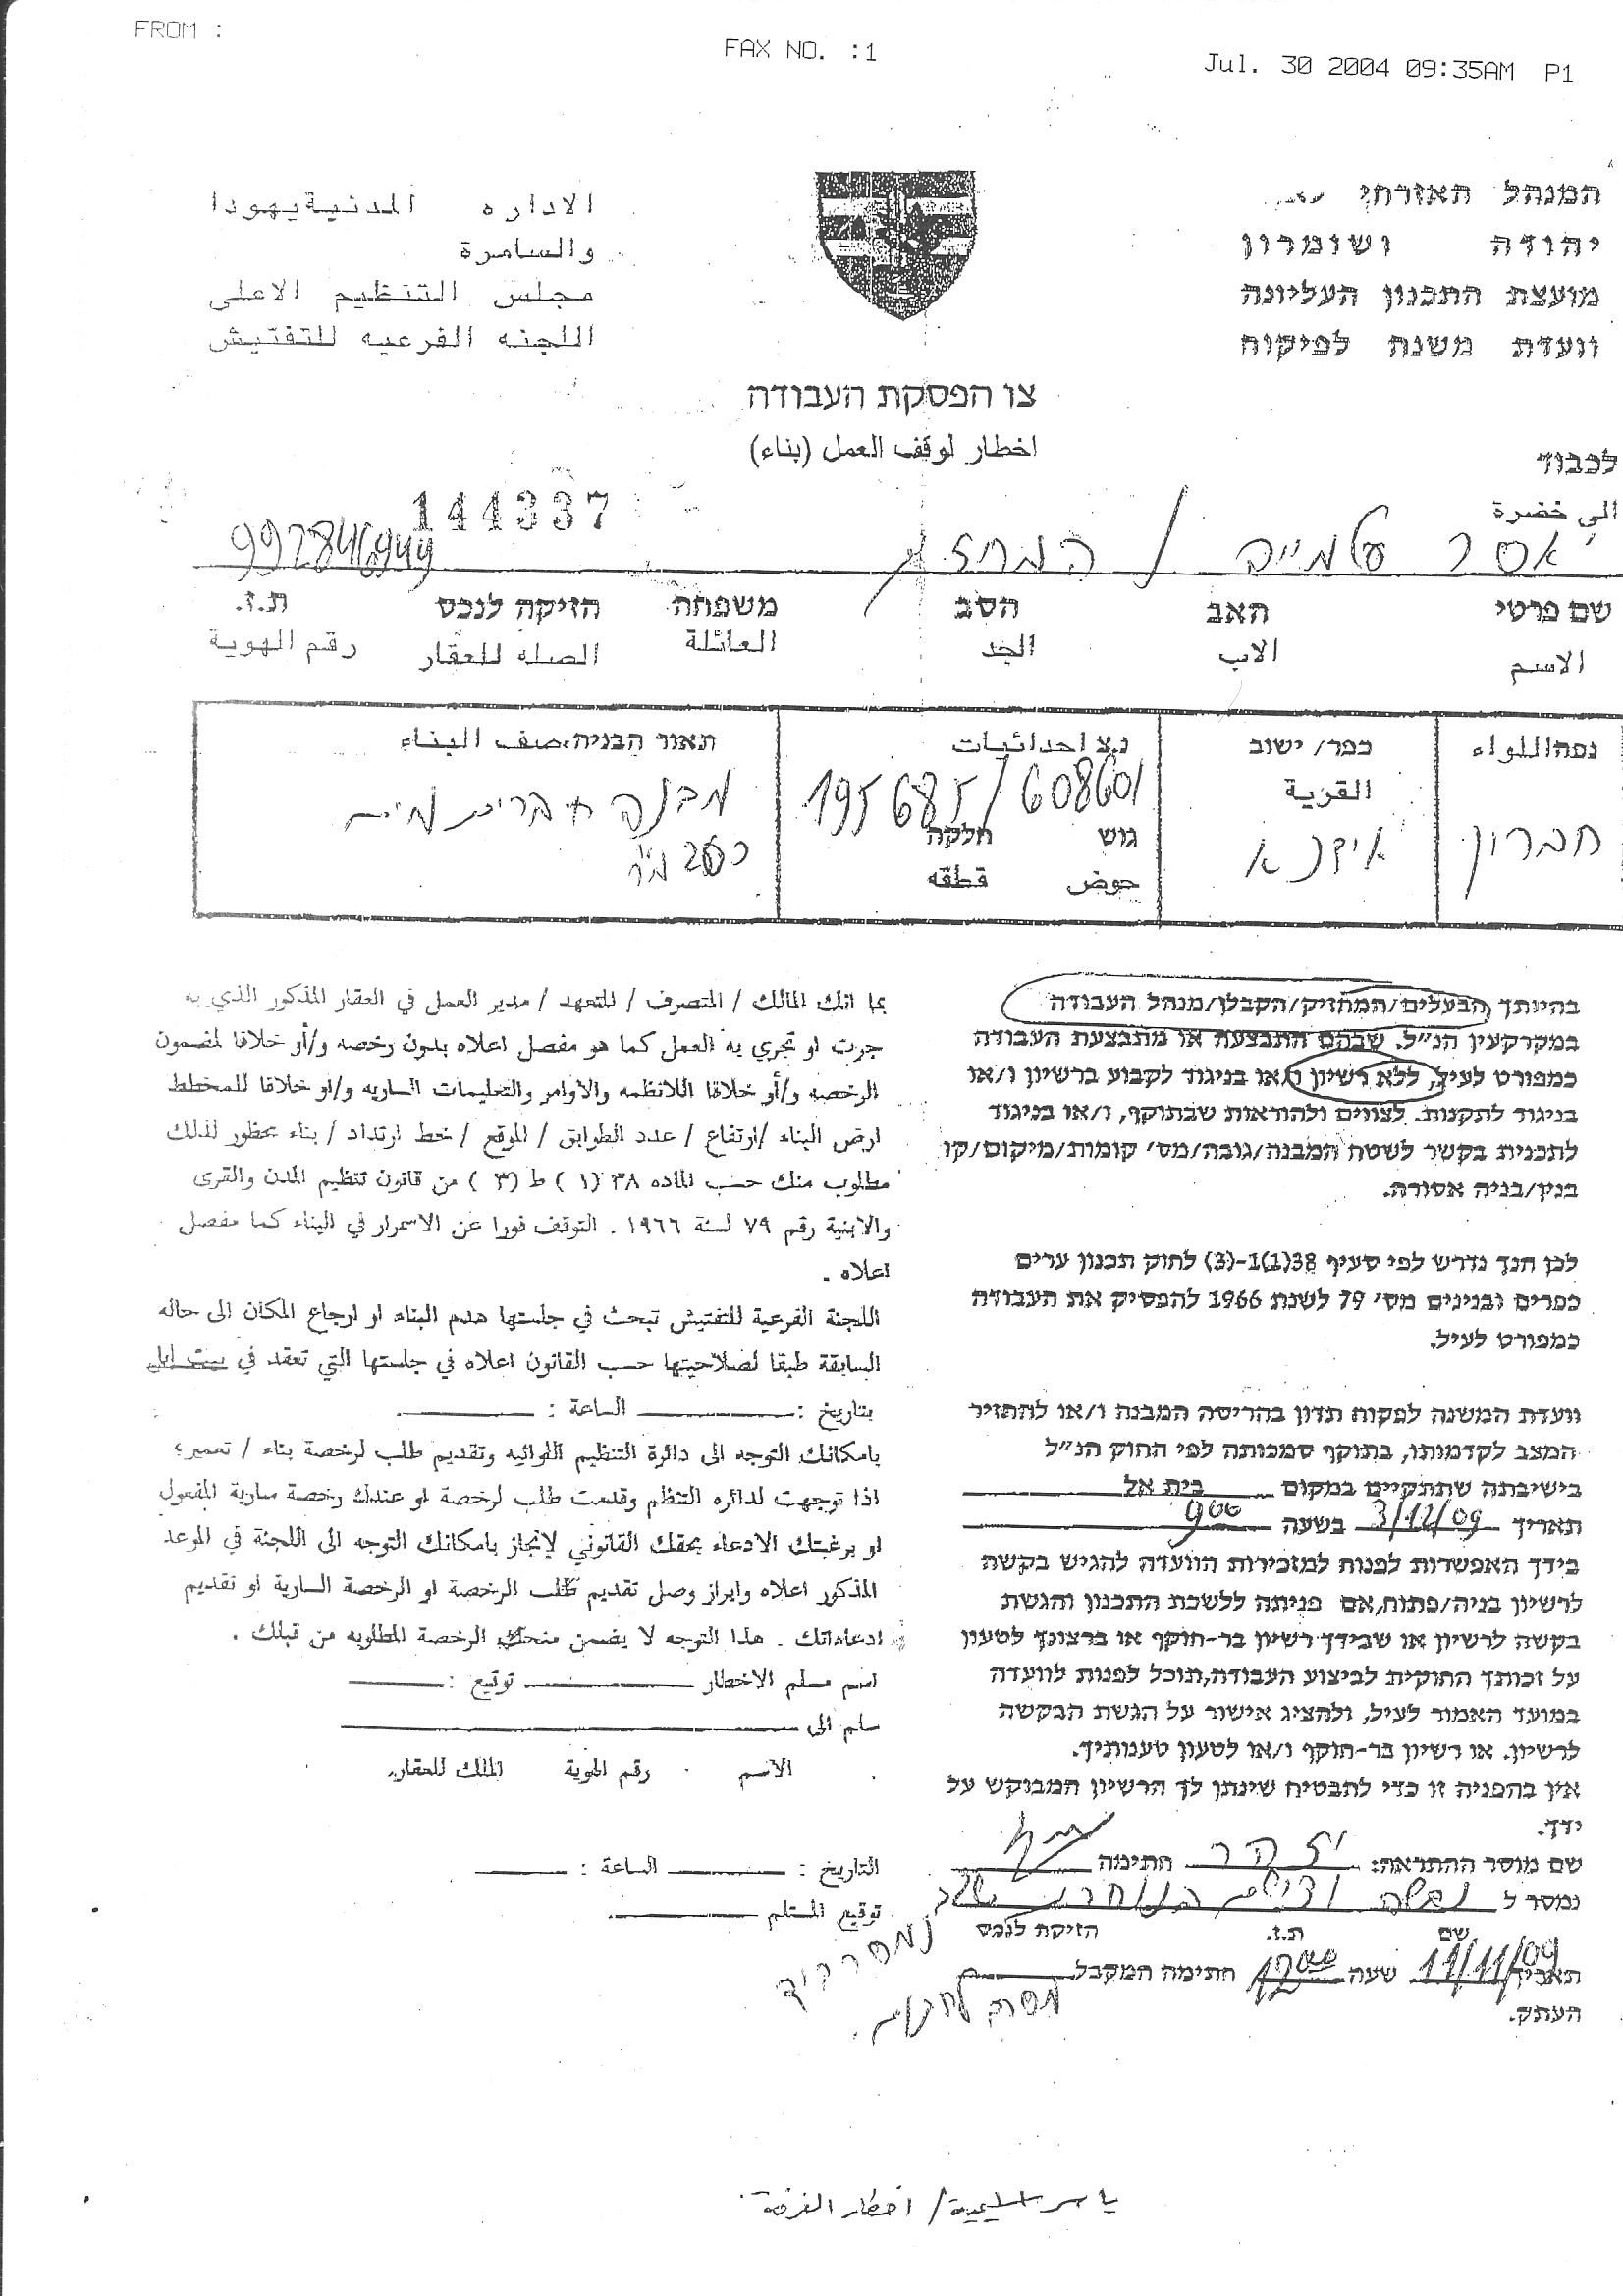 FROM :
FAX NO. :1
Jul. 30 2004 09:35AM P1
המנהל האזרחי
יהודה ושומרון
מועצת התכנון העליונה
וועדת משנה לפיקוח
الاداره المدنية يهودا
والسامرة
مجلس التنظيم الاعلى
اللجنه الفرعيه للتفتيش
צו הפסקת העבודה
اخطار لوقف العمل (بناء)
לכבוד
الى حضرة
144337
יאסר /
992846949
שם פרטי האב הסב משפחה הזיקה לנכס ת.ז.
الاسم الاب الجد العائلة الصله للعقار رقم الهوية
נפה اللواء
חברון
כפר/ ישוב
القرية
אידנא
נ.צ احداثيات
195685/608601
גוש חלקה
حوض قطقه
תאור הבניה صف البناء
מבנה
כ 260 מ"ר
בהיותך הבעלים/המחזיק/הקבלן/מנהל העבודה
במקרקעין הנ״ל. שבהם התבצעה או מתבצעת העבודה
כמפורט לעיל, ללא רשיון ו/או בניגוד לקבוע ברשיון ו/או
בניגוד לתקנות. לצווים ולהוראות שבתוקף, ו/או בניגוד
לתכנית בקשר לשטח המבנה/גובה/מס׳ קומות/מיקום/קו
בנין/בניה אסורה.
לכן הנך נדרש לפי סעיף 38(1)1-(3) לחוק תכנון ערים
כפרים ובנינים מס׳ 79 לשנת 1966 להפסיק את העבודה
כמפורט לעיל.
וועדת המשנה לפקוח תדון בהריסה המבנה ו/או להחזיר
המצב לקדמותו, בתוקף סמכותה לפי החוק הנ״ל
בישיבתה שתתקיים במקום בית אל
תאריך 3/12/09 בשעה 900
בידך האפשרות לפנות למזכירות הוועדה להגיש בקשה
לרשיון בניה/פתוח,אם פניתה ללשכת התכנון והגשת
בקשה לרשיון או שבידך רשיון בר-תוקף או ברצונך לטעון
על זכותך החוקית לביצוע העבודה,תוכל לפנות לוועדה
במועד האמור לעיל, ולהציג אישור על הגשת הבקשה
לרשיון. או רשיון בר-תוקף ו/או לטעון טענותיך.
אין בהפניה זו כדי להבטיח שינתן לך הרשיון המבוקש על
ידך.
שם מוסר ההתראה: יזהר חתימה
נמסר ל
שם ת.ז. הזיקת לנכס
תאריך 11/11/09 שעה 1200 חתימה המקבל
העתק.
بما انك المالك / المتصرف / المتعهد / مدير العمل في العقار المذكور الذي به
جرت او تجري به العمل كما هو مفصل اعلاه بدون رخصه و/أو خلافا لمضمون
الرخصه و/أو خلافا للانظمه والاوامر والتعليمات الساريه و/او خلافا للمخطط
ارض البناء /ارتفاع / عدد الطوابق / الموقع / خط ارتداد / بناء محظور لذلك
مطلوب منك حسب الماده ٣٨ (١) ط (٣) من قانون تنظيم المدن والقرى
والابنية رقم ٧٩ لسنة ١٩٦٦ . التوقف فورا عن الاسمرار في البناء كما مفصل
اعلاه .
اللجنة الفرعية للتفتيش تبحث في جلستها هدم البناء او ارجاع المكان الى حاله
السابقة طبقا لصلاحيتها حسب القانون اعلاه في جلستها التي تعقد في بيت ايل
بتاريخ : الساعة :
بامكانك التوجه الى دائرة التنظيم اللوائيه وتقديم طلب لرخصة بناء / تعمير؛
اذا توجهت لدائره التنظم وقدمت طلب لرخصة او عندك رخصة سارية المفعول
او برغبتك الادعاء بحقك القانوني لإنجاز بامكانك التوجه الى اللجنة في الموعد
المذكور اعلاه وابراز وصل تقديم طلب الرخصة او الرخصة السارية او تقديم
ادعاءاتك . هذا التوجه لا يضمن منحك الرخصة المطلوبه من قبلك .
اسم مسلم الاخطار توقيع :
سلم الى
الاسم رقم الهوية الملك للعقار
التاريخ : الساعة :
توقيع المستلم
נמסר ביד
ياسر اسليمية/ اخطار الغرفة